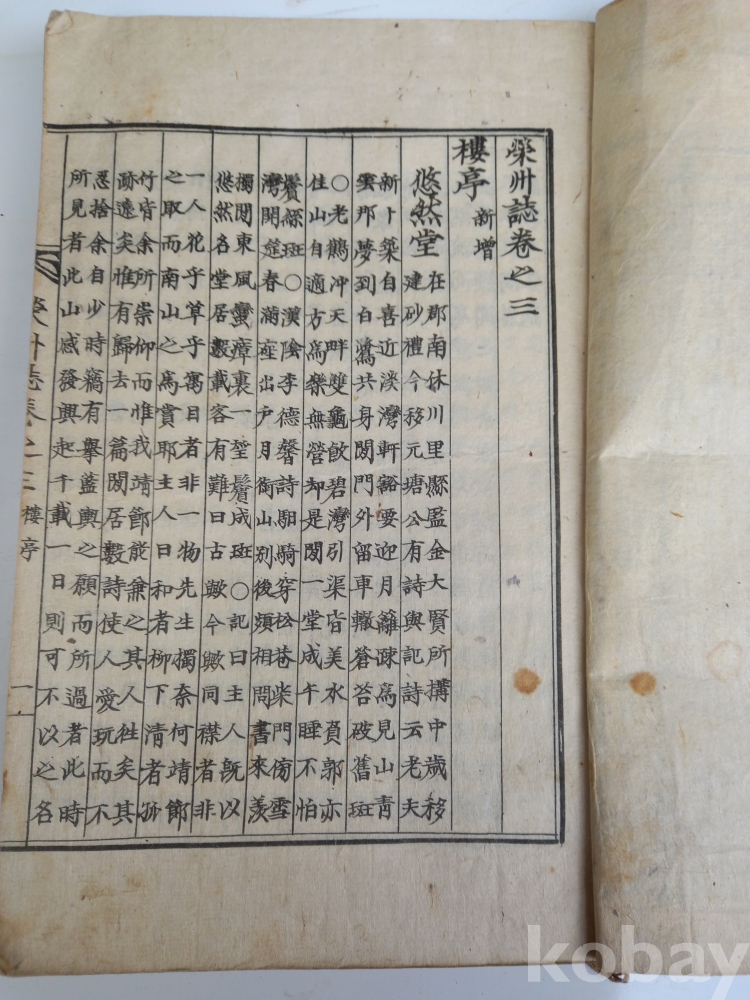 榮州誌卷之三
樓亭 新增
悠然堂 在郡南休川里縣監金大賢所搆中歲移
建砂禮今移元塘公有詩與記詩云老夫
新卜築自喜近淡灣軒豁要迎月籬疎爲見山靑
雲那夢到白鷗共身閒門外留車轍蒼苔破舊斑
○老鶴冲天畔雙龜飮碧灣引渠皆美水負郭亦
佳山自適方爲樂無營却是閒一堂成午睡不怕
鬢絲斑○漢陰李德馨詩馹騎穿松巷柴門傍雪
灣開筵春滿座出戶月銜山別後須相問書來羨
獨閒東風蠻瘴裏一望鬢成斑○記曰主人旣以
悠然名堂居數載客有難曰古歟今歟同襟者非
一人花乎草乎寓目者非一物先生獨奈何靖節
之取而南山之爲賞耶主人曰和者柳下淸者孤
竹皆余所崇仰而惟我靖節能兼之其人往矣其
跡遠矣惟有歸去一篇閒居數詩使人愛玩而不
忍捨余自少時竊有擧藍輿之願而所過者此時
所見者此山感發興起千載一日則可不以之名
榮州誌卷之三 樓亭 一
kobay